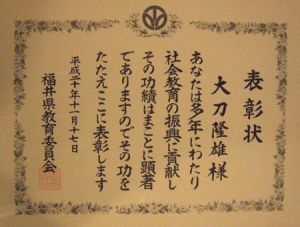 表彰状
大刀隆雄様
あなたは多年にわたり
社会教育の振興に貢献し
その功績はまことに顕著
でありますのでその功を
たたえここに表彰します
平成二十年十一月十七日
福井県教育委員会